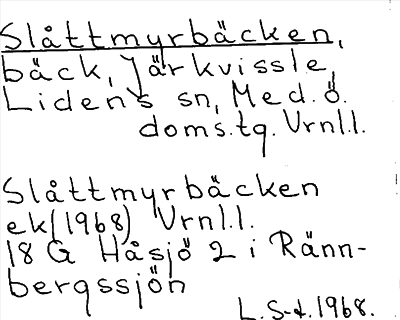 Slåttmyrbäcken,
bäck, Järkvissle,
Lidens sn, Med. ö.
doms.tg. Vrnl.l.
Slåttmyrbäcken
ek(1968) Vrnl.l.
18 G Håsjö 2 i Ränn-
bergssjön
L.S-t.1968.